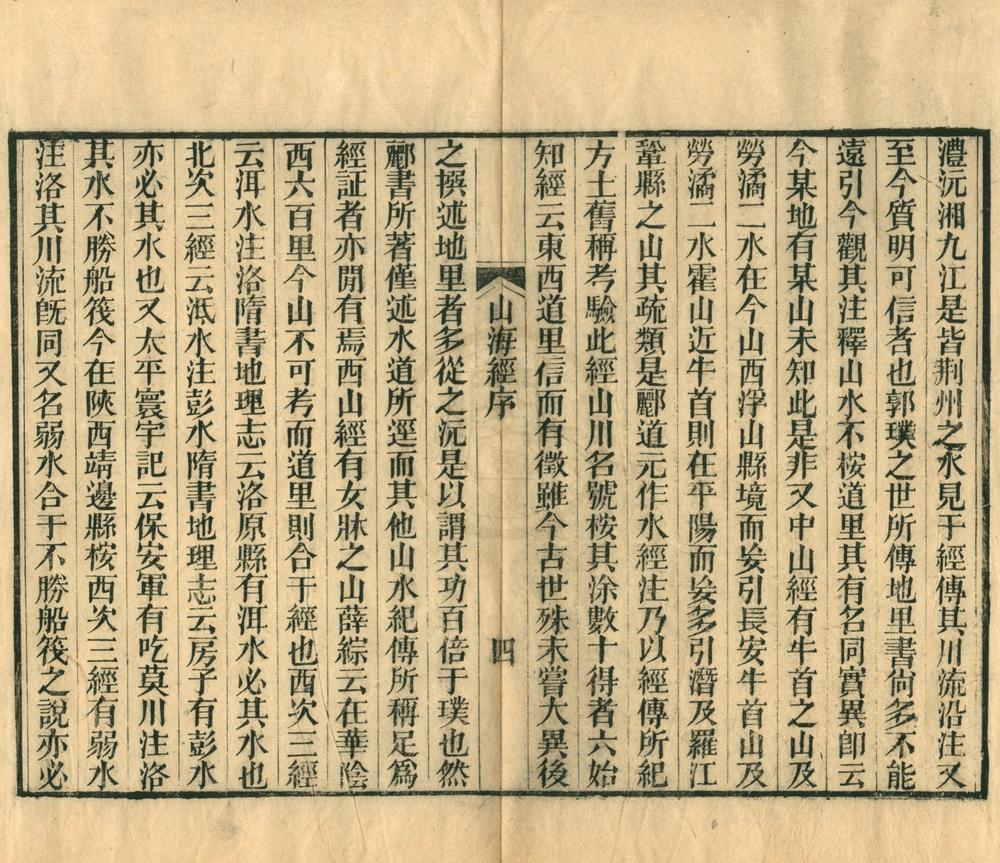 澧沅湘九江是皆荆州之水見于經傳其川流沿注又
至今質明可信者也郭璞之世所傳地里書尙多不能
遠引今觀其注釋山水不桉道里其有名同實異卽云
今某地有某山未知此是非又中山經有牛首之山及
勞潏二水在今山西浮山縣境而妄引長安牛首山及
勞潏二水霍山近牛首則在平陽而妄多引潛及羅江
鞏縣之山其疏類是酈道元作水經注乃以經傳所紀
方土舊稱考驗此經山川名號桉其涂數十得者六始
知經云東西道里信而有徵雖今古世殊未嘗大異後
山海經序
四
之撰述地里者多從之沅是以謂其功百倍于璞也然
酈書所著僅述水道所逕而其他山水紀傳所稱足爲
經証者亦閒有焉西山經有女牀之山薛綜云在華陰
西六百里今山不可考而道里則合于經也西次三經
云洱水注洛隋書地理志云洛原縣有洱水必其水也
北次三經云泜水注彭水隋書地理志云房子有彭水
亦必其水也又太平寰宇記云保安軍有吃莫川注洛
其水不勝船筏今在陝西靖邊縣桉西次三經有弱水
注洛其川流旣同又名弱水合于不勝船筏之說亦必